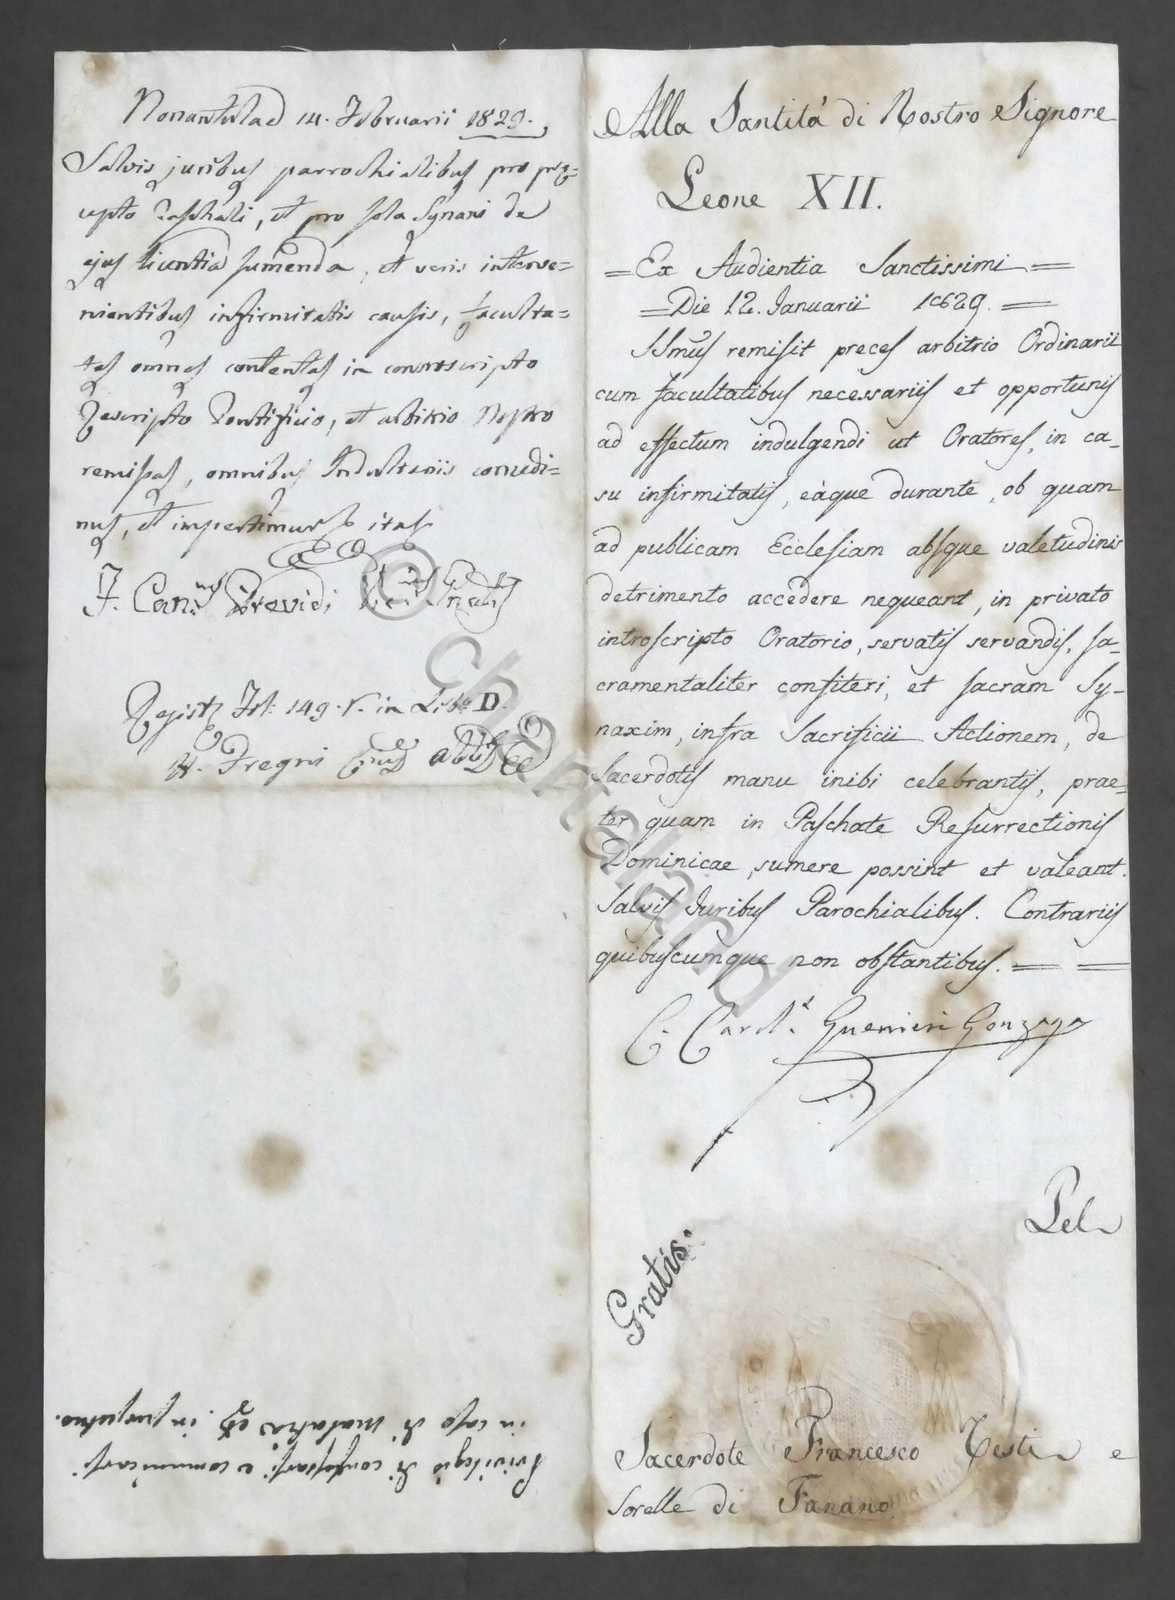 Nonantulae 14. Februarii 1829.
Salvis juribus parrochialibus pro præ=
cepto Paschali, et pro sola Synaxi de
ejus licentia sumenda, et veris interve=
nientibus infirmitatis causis, faculta=
tes omnes contentas in controscripto
Rescripto Pontificio, et arbitrio Nostro
remissas, omnibus Indultariis concedi=
mus, et impertimur ita
F. Can.cus Previdi
Registr. Fol: 149. r. in Lib. D.
A. Fregni
Privilegio di confessarsi e comunicarsi
in caso di malattia in perpetuo.
Alla Santità di Nostro Signore
Leone XII.
= Ex Audientia Sanctissimi =
= Die 12. Januarii 1829. =
SSmus remisit preces arbitrio Ordinarii
cum facultatibus necessariis et opportunis
ad effectum indulgendi ut Oratores, in ca-
su infirmitatis, eàque durante, ob quam
ad publicam Ecclesiam absque valetudinis
detrimento accedere nequeant, in privato
introscripto Oratorio, servatis servandis, sa-
cramentaliter confiteri, et sacram Sy-
naxim, infra Sacrificii Actionem, de
Sacerdotis manu inibi celebrantis, prae=
ter quam in Paschate Resurrectionis
Dominicae, sumere possint et valeant.
Salvis Juribus Parochialibus. Contrariis
quibuscumque non obstantibus. = =
C. Card. Guerrieri Gonzaga
Pel
Gratis.
Sacerdote Francesco Testi e
Sorelle di Fanano
© chartaland